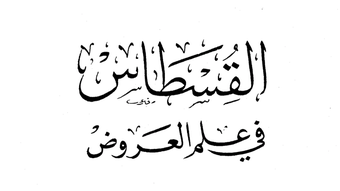 القِسْطَاسْ
في علم العروض